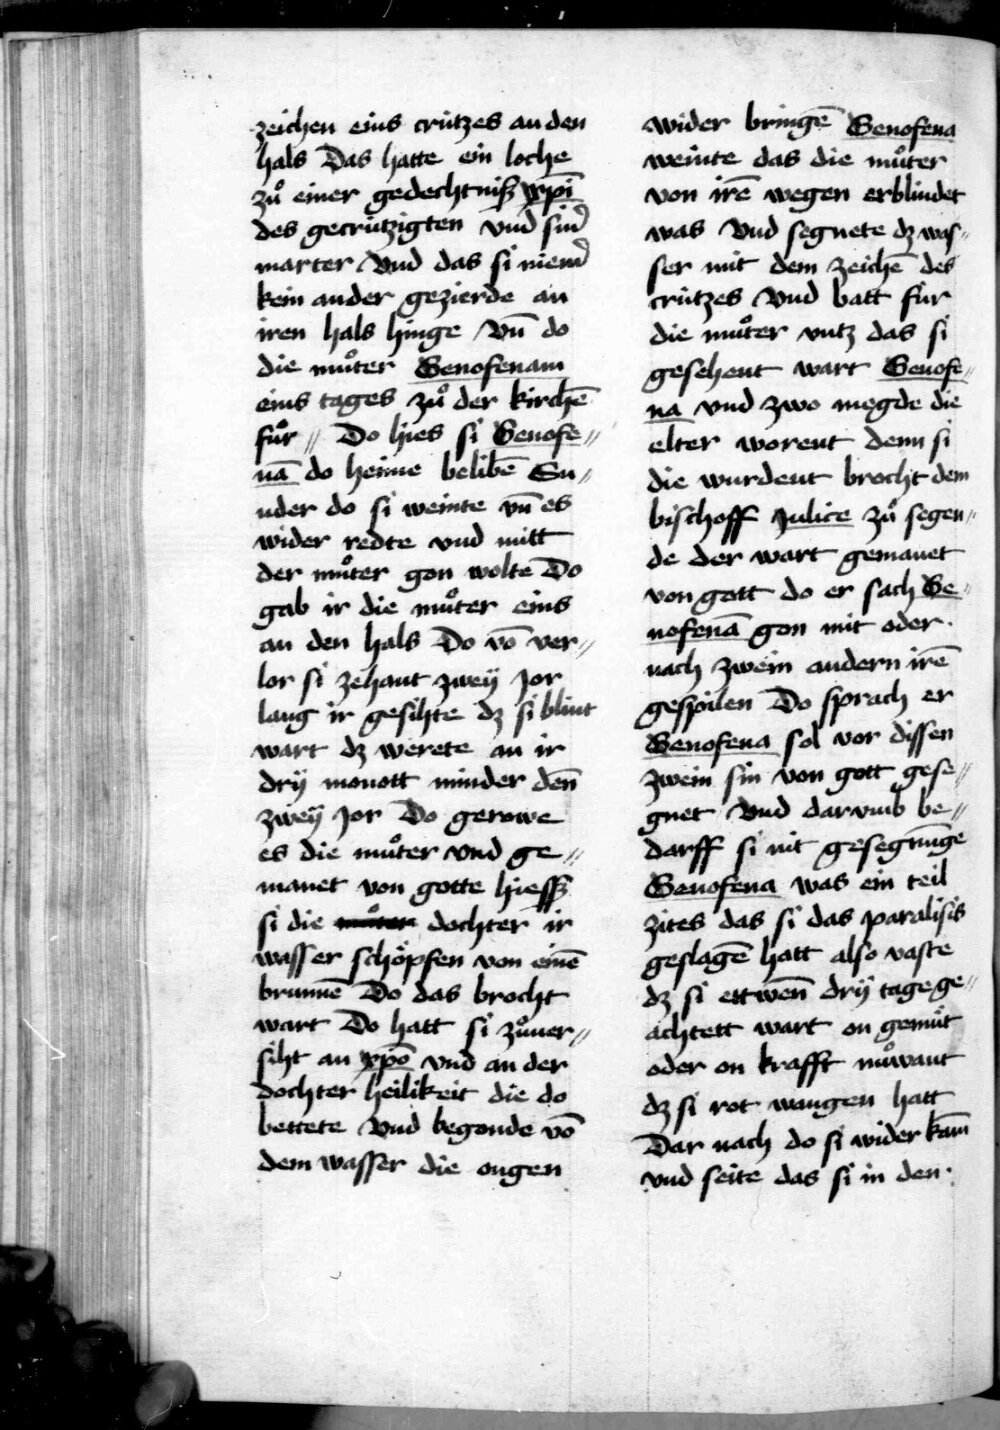 zeichen eins crützes an den
hals Das hatte ein loche
zuͦ einer gedechtniß xp̄i
des gecrützigten vnd sind
marter Vnd das si niemd
kein ander gezierde an
iren hals hinge Vn̄ do
die muͦter Genofenam
eins tages zuͦ der kirchē
fuͦr // Do hies si Genofe//
nā do heime belibē Su//
nder do si weinte vn̄ es
wider redte vnd mitt
der muͦter gon wolte Do
gab ir die muͦter eins
an den hals Do vō ver//
lor si zehant zweÿ Jor
lang ir gesihte dz si blint
wart dz werete an ir
drÿ monott minder den̄
zweÿ Jor Do gerowe
es die muͦter vnd ge//
manet von gotte hiessz
si die muͦter dochter ir
wasser schöpfen von einē
brunnē Do das brocht
wart Do hatt si zuͦuer//
siht an xpō vnd an der
dochter heilikeit die do
bettete Vnd begonde vō
dem wasser die ougen
wider bringē Genofena
weinte das die muͦter
von irē wegen erblindet
was Vnd segnete dz was//
ser mit dem zeichē des
crützes Vnd batt für
die muͦter vntz das si
gesehent wart Genofe//
na vnd zwo megde die
elter worent denn si
die wurdent brocht dem
bischoff Julice zuͦ segen//
de der wart gemanet
von gott do er sach Ge//
nofenā gon mit oder
nach zwein andern irē
gespilen Do sprach er
Genofena sol vor dissen
zwein sin von gott gese//
gnet Vnd darvmb be//
darff si nit gesegnūge
Genofena was ein teil
zites das si das paralisis
geslagē hatt also vaste
dz si ettwen̄ drÿ tage ge//
achtett wart on gemüt
oder on krafft nuͦwant
dz si rot wangen hatt
Dar nach do si wider kam̄
vnd seite das si in den